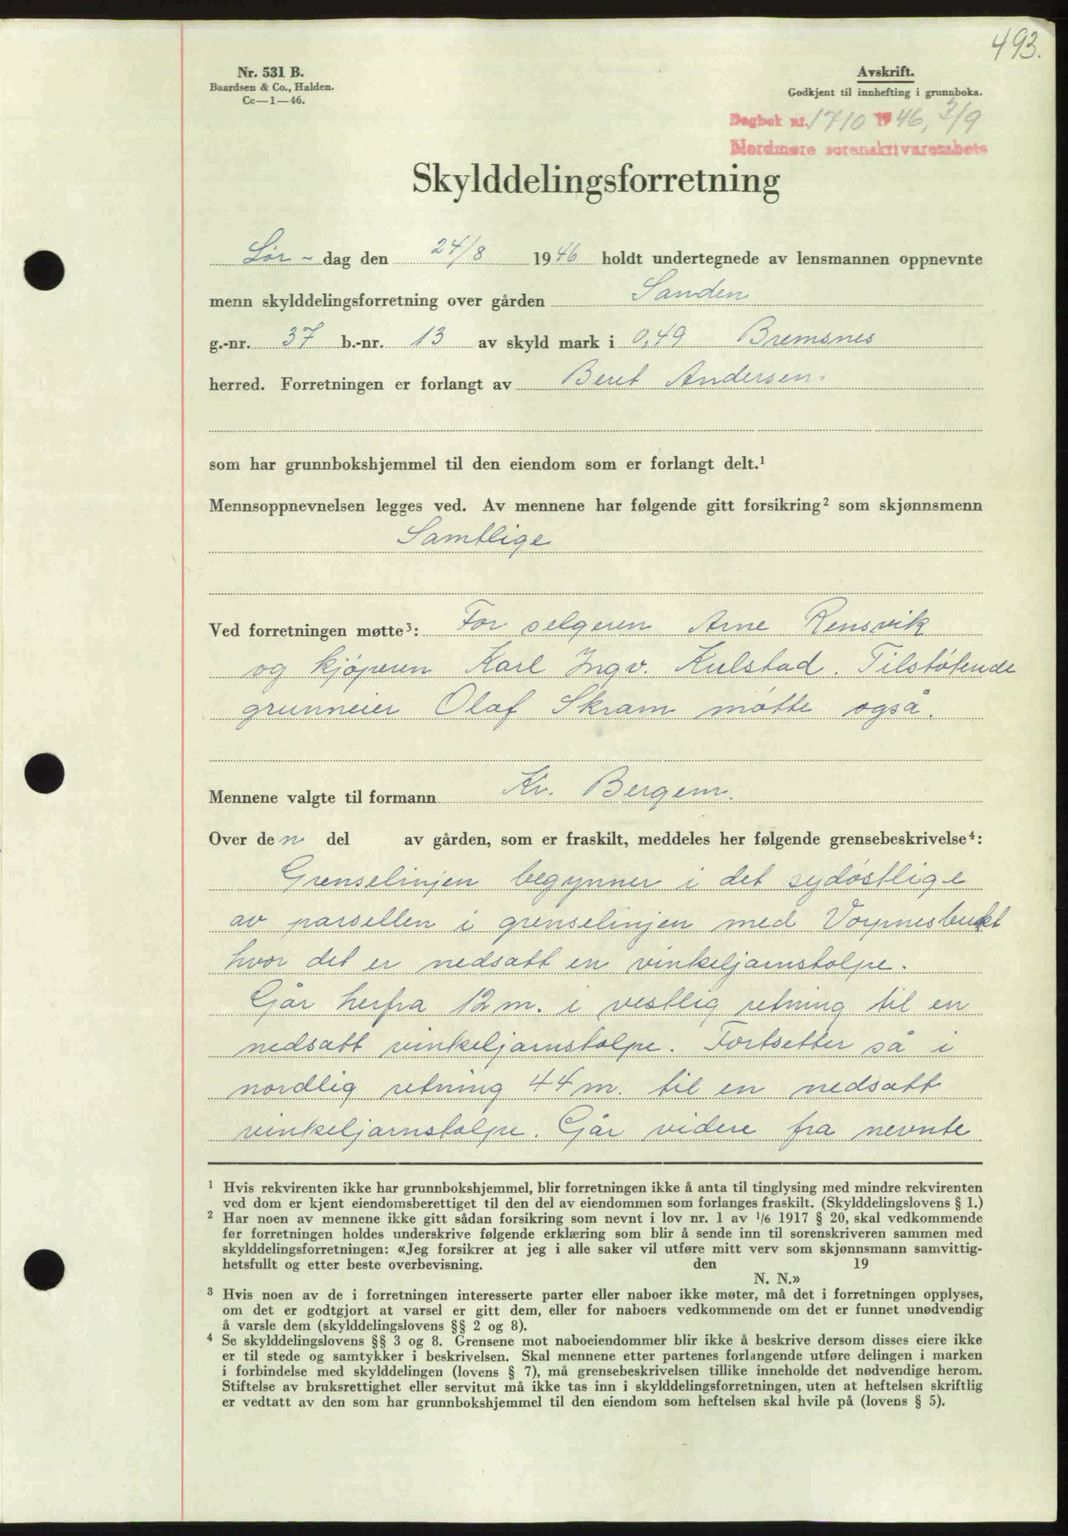 493.
Nr. 531 B.
Baardsen & Co., Halden.
Cc—1—46.
Avskrift.
Godkjent til innhefting i grunnboka.
Dagbok nr. 1710 1946, 3/9
Nordmøre sorenskriverembete
Skylddelingsforretning
Lør- dag den 24/8 1946 holdt undertegnede av lensmannen oppnevnte
menn skylddelingsforretning over gården Sanden
g.-nr. 37 b.-nr. 13 av skyld mark i 0,49 Bremsnes
herred. Forretningen er forlangt av Beret Andersen.
som har grunnbokshjemmel til den eiendom som er forlangt delt.¹
Mennsoppnevnelsen legges ved. Av mennene har følgende gitt forsikring² som skjønnsmenn
Samtlige
Ved forretningen møtte³: For selgeren Arne Rensvik
og kjøperen Karl Ingv. Kulstad. Tilstøtende
grunneier Olaf Skram møtte også.
Mennene valgte til formann Kr. Bergem.
Over den del av gården, som er fraskilt, meddeles her følgende grensebeskrivelse⁴:
Grenselinjen begynner i det sydøstlige
av parsellen i grenselinjen med Vorpnesbukt
hvor det er nedsatt en vinkeljarnstolpe.
Går herfra 12 m. i vestlig retning til en
nedsatt vinkeljarnstolpe. Fortsetter så i
nordlig retning 44 m. til en nedsatt
vinkeljarnstolpe. Går videre fra nevnte
¹ Hvis rekvirenten ikke har grunnbokshjemmel, blir forretningen ikke å anta til tinglysing med mindre rekvirenten
ved dom er kjent eiendomsberettiget til den del av eiendommen som forlanges fraskilt. (Skylddelingslovens § 1.)
² Har noen av mennene ikke gitt sådan forsikring som nevnt i lov nr. 1 av 1/6 1917 § 20, skal vedkommende
før forretningen holdes underskrive følgende erklæring som blir å sende inn til sorenskriveren sammen med
skylddelingsforretningen: «Jeg forsikrer at jeg i alle saker vil utføre mitt verv som skjønnsmann samvittig-
hetsfullt og etter beste overbevisning. den 19
N. N.»
³ Hvis noen av de i forretningen interesserte parter eller naboer ikke møter, må det i forretningen opplyses,
om det er godtgjort at varsel er gitt dem, eller for naboers vedkommende om det er funnet unødvendig
å varsle dem (skylddelingslovens §§ 2 og 8).
⁴ Se skylddelingslovens §§ 3 og 8. Grensene mot naboeiendommer blir ikke å beskrive dersom disses eiere ikke
er til stede og samtykker i beskrivelsen. Skal mennene etter partenes forlangende utføre delingen i marken
i forbindelse med skylddelingen (lovens § 7), må grensebeskrivelsen tillike inneholde det nødvendige herom.
Stiftelse av bruksrettighet eller servitut må ikke tas inn i skylddelingsforretningen, uten at heftelsen skriftlig
er vedtatt av den som har grunnbokshjemmel til den eiendom som heftelsen skal hvile på (lovens § 5).